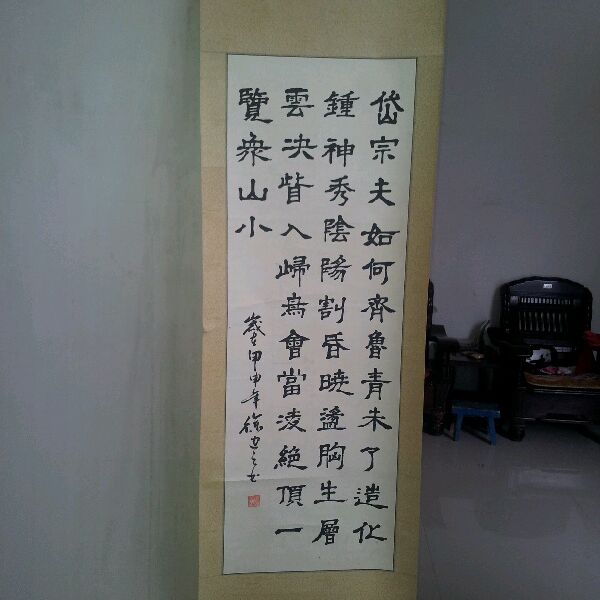 岱宗夫如何齊魯青未了造化
鍾神秀陰陽割昏曉盪胸生層
雲決眥入歸鳥會當淩絕頂一
覽衆山小
歲甲申年徐